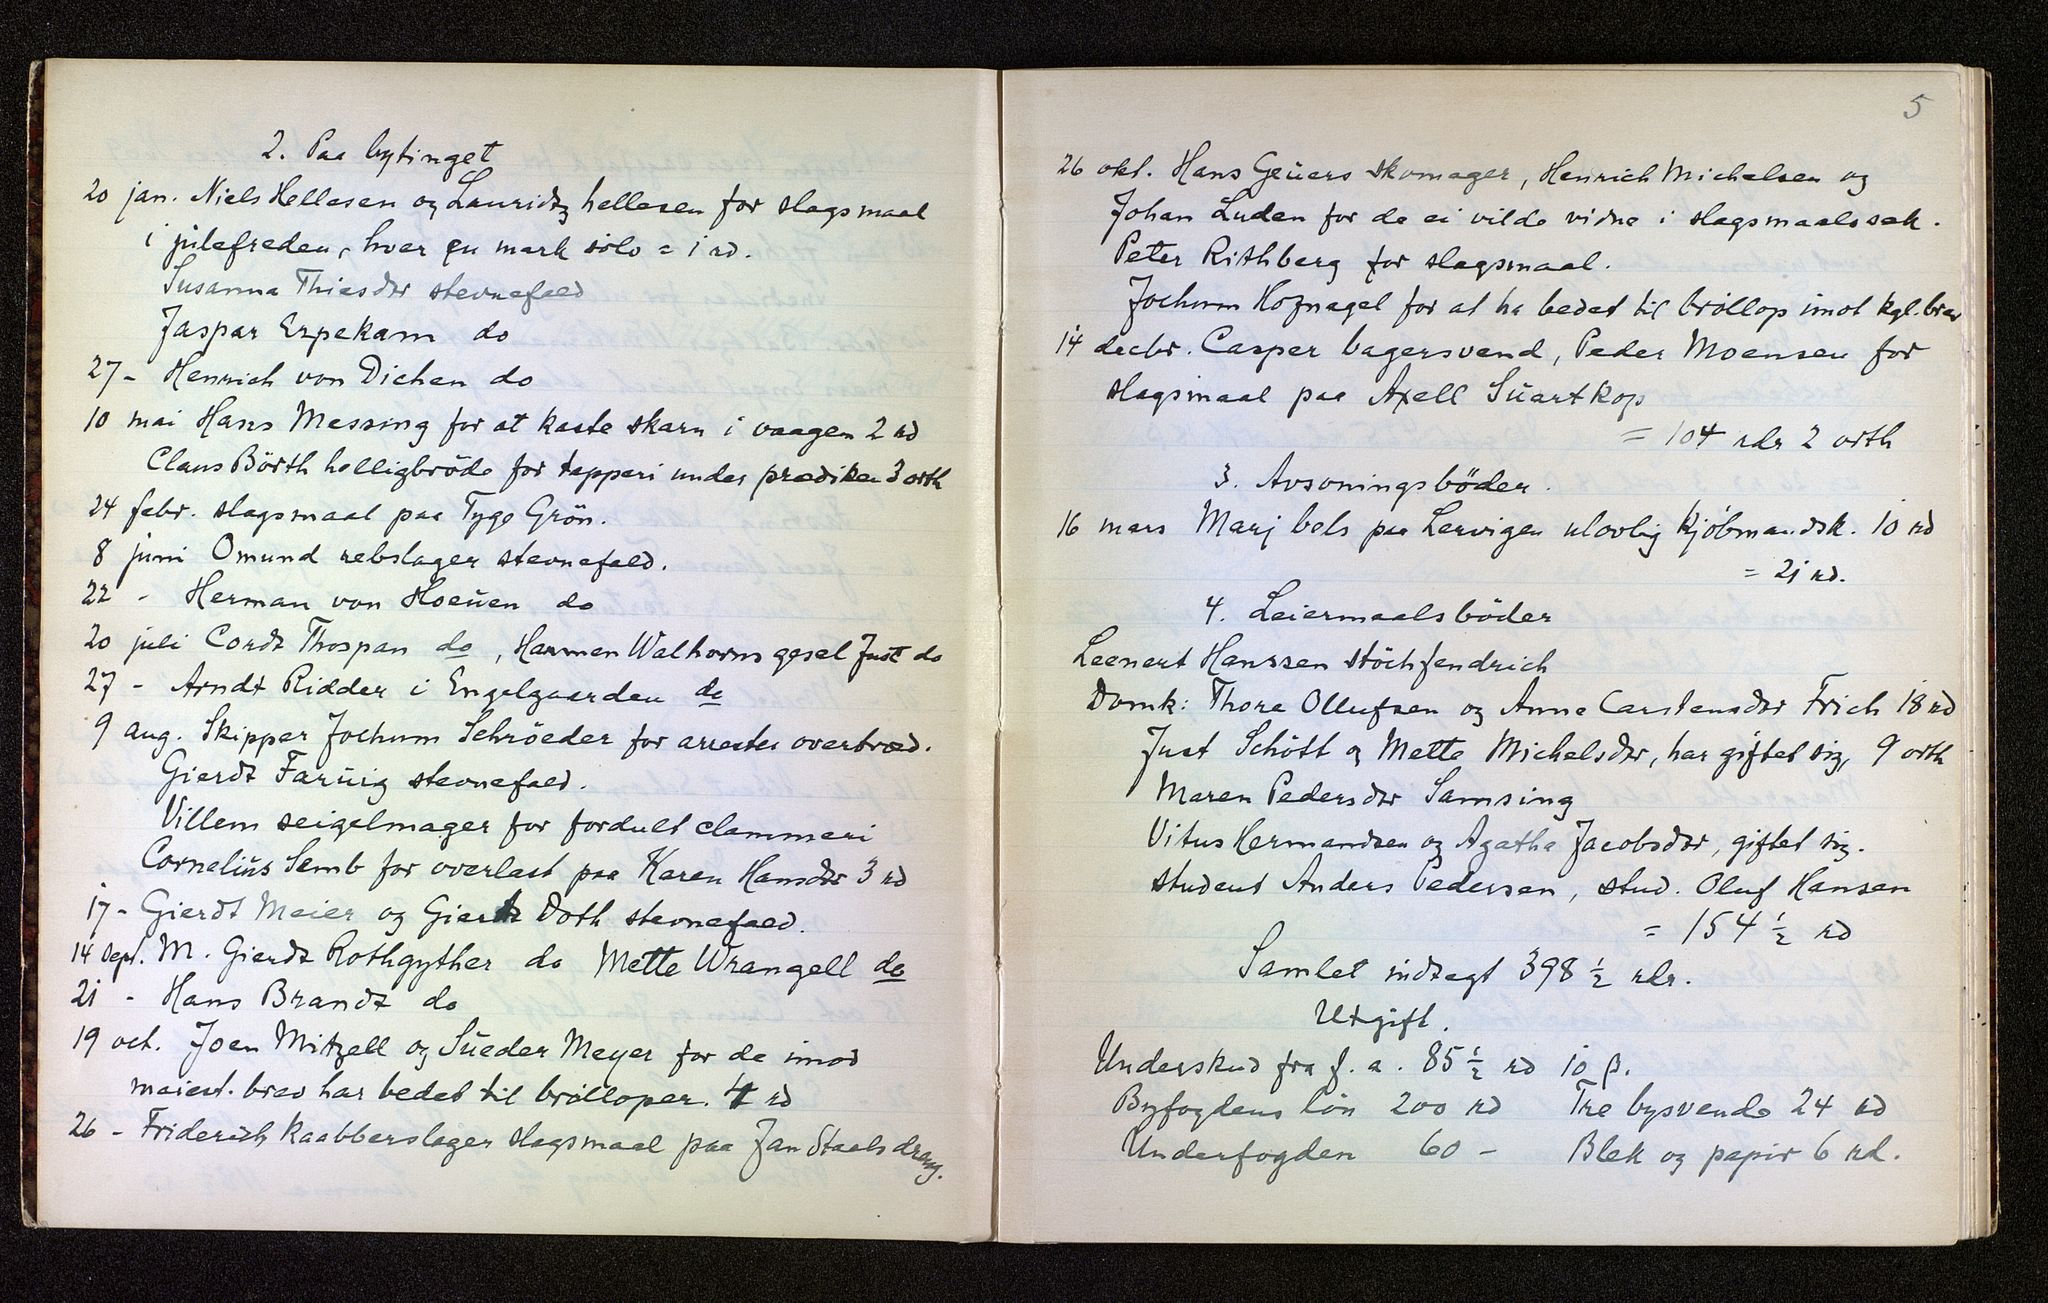 2. Paa bytinget
20 jan. Niels Hellesen og Lauridtz hellesen for slagsmaal
i julefreden, hver en mark sölv = 1 rd.
Susanna Thiesdtr stevnefald
Jaspar Erpekam do
27 - Henrich von Dichen do
10 mai Hans Messing for at kaste skarn i vaagen 2 rd
Claus Börth helligbröde for tapperi under prediken 3 orth
24 febr. slagsmaal paa Tyge Grön.
8 juni Omund rebslager stevnefald.
22 - Herman von Hoeuen do
20 juli Cordt Thospan do, Harmen Walhorns gesel Just do
27 - Arndt Ridder i Engelgaarden do
9 aug. Skipper Jochum Schröeder for arrestes overtræd.
Gierdt Faruig stevnefald.
Villem seigelmager for fordult clammeri
Cornelius Semb for overlast paa Karen Hansdtr 3 rd
17 - Gierdt Meier og Giert Doth stevnefald.
14 sept. M. Gierdt Rothgyther do Mette Wrangell do
21 - Hans Brandt do
19 oct. Joen Mitzell og Sueder Meyer for de imod
maiest. brev har bedet til brölloper. 4 rd
26 - Friderich kaabberslager slagsmaal paa Jan Staals dreng.
5
26 okt. Hans Geuers skomager, Henrich Michelsen og
Johan Luden for de ei vilde vidne i slagsmaalssak.
Peter Rithberg for slagsmaal.
Jochum Hofnagel for at ha bedet til bröllop imot kgl. brev
14 decbr. Casper bagersvend, Peder Moensen for
slagsmaal paa Axell Suartkop
= 104 rdr 2 orth
3. Avsoningsböder.
16 mars Marj bels paa Lervigen ulovlig kjöbmandsk. 10 rd
= 21 rd.
4. Leiermaalsböder
Leenert Hanssen stöchfendrich
Domk: Thore Ollufsen og Anne Carstensdtr Frich 18 rd
Just Schött og Mette Michelsdtr, har giftet sig, 9 orth
Maren Pedersdtr Samsing
Vitus Hermandsen og Agatha Jacobsdtr, giftet sig.
student Anders Pedersen, stud. Oluf Hansen
= 154 ½ rd
Samlet indtægt 398 ½ rdr.
Utgift.
Underskud fra f. a. 85 ½ rd 10 β.
Byfogdens lön 200 rd Tre bysvende 24 rd
Underfogden 60 - Blek og papir 6 rd.